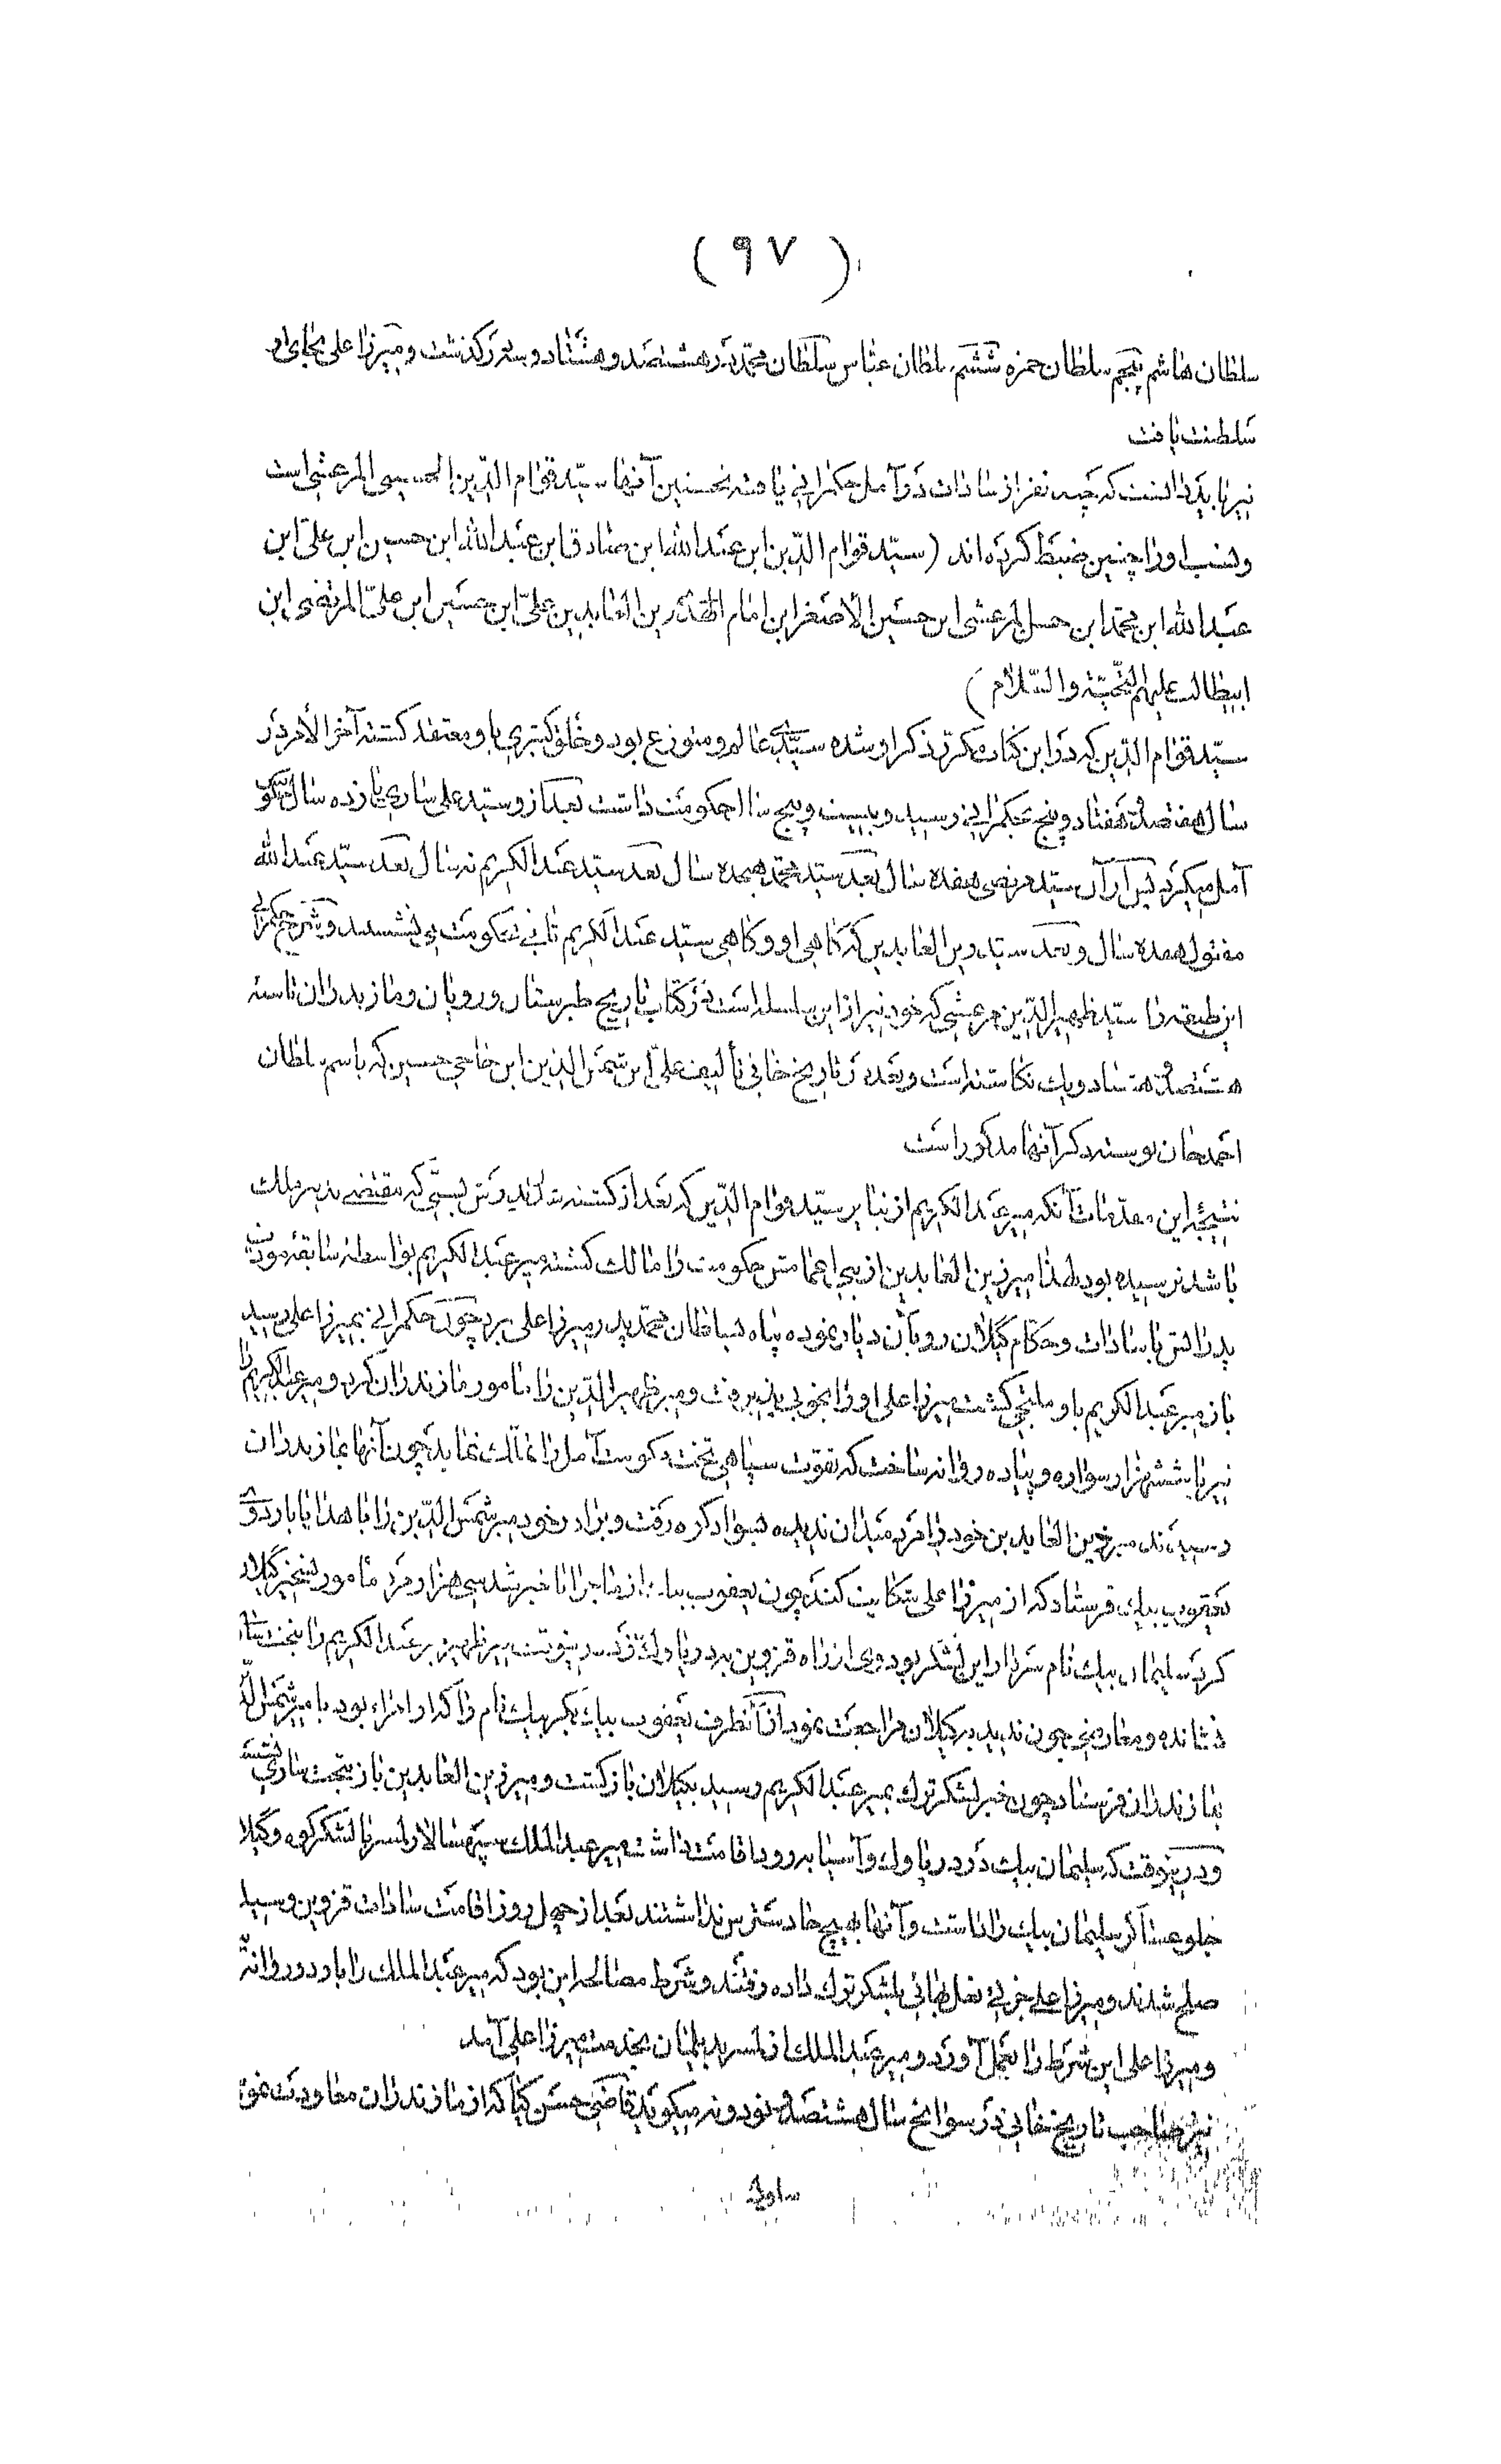 ( ۹۷ )
سلطان هاشم پنجم سلطان حمزه ششم سلطان عباس سلطان محمد در هشتصد و هشتاد و سه در گذشت و میرزا علی بجای او
سلطنت یافت
نیز باید دانست که چند نفر از سادات در آمل حکمرانی یافته نخستین آنها سیّد قوام الدّین الحسینی المرعشی است
و نسب او را چنین ضبط کرده اند (سیّد قوام الدّین ابن عبد الله ابن صادق ابن عبد الله ابن حسین ابن علیّ ابن
عبد الله ابن محمّد ابن حسن المرعشی ابن حسین الأصغر ابن امام الهمّام زین العابدین علیّ ابن حسین ابن علیّ المرتضی ابن
ابیطالب علیهم التّحیّة و السّلام)
سیّد قوام الدّین که در این کتاب مکرّر ذکر او شده سیّدی عالم و متورّع بود و خلق کثیری باو معتقد کشته آخر الأمر در
سال هفتصد و هفتاد و پنج بحکمرانی رسید و بیست و پنج سال حکومت داشت بعد از و سیّد علی ساری یازده سال حکومت
آمل میکرد پس از آن سیّد مرتضی هفده سال بعد سیّد محمّد هجده سال بعد سیّد عبد الکریم نه سال بعد سیّد عبد الله
مقتول هجده سال و بعد سیّد زین العابدین که کاهی او و کاهی سیّد عبد الکریم ثانی بحکومت می نشستند و شرح حکمرانی
این طبقه را سیّد ظهیر الدّین مرعشی که خود نیز از این سلسله است در کتاب تاریخ طبرستان و رویان و مازندران تا سنه
هشتصد و هشتاد و یک نکاشته است و بعد در تاریخ خانی تألیف علیّ ابن شمس الدّین ابن حاجی حسین که باسم سلطان
احمد خان نوشته ذکر آنها مذکور است
نتیجۀ این مقدّمات آنکه میر عبد الکریم از بنایر سیّد قوام الدّین که بعد از کشته شدن پدرش بسنّی که مقتضی تدبیر ملک
باشد نرسیده بود لهذا میر زین العابدین از بنی اعمامش حکومت را مالک کشته میر عبد الکریم بواسطه سابقه مودّت
پدرانش با سادات و حکّام کیلان رو بآن دیار نموده پناه بسلطان محمّد پدر میرزا علی برد چون حکمرانی بمیرزا علی رسید
باز میر عبد الکریم باو ملتجی کشت میرزا علی او را بخوبی پذیرفت و میر ظهیر الدّین را مامور مازندران کرد و میر عبد الکریم را
نیز با ششهزار سواره و پیاده روانه ساخت که بتقویت سپاهی تخت حکومت آمل را تملّک نماید چون آنها بمازندران
رسیدند میر زین العابدین خود را مرد میدان ندیده بسواد کوه رفت و برادر خود میر شمس الدّین را با هدایا باردوی
یعقوب بیک فرستاد که از میرزا علی شکایت کند چون یعقوب بیک از ماجرا با خبر شد سی هزار مرد مامور تسخیر کیلان
کرد سلیمان بیک نام سردار این لشکر بود وی از راه قزوین بدریاوک زد درینوقت میر ظهیر میر عبد الکریم را بتخت ساری
نشانده و معارضی چون ندید بکیلان مراجعت نمود از آنطرف یعقوب بیک بکر بیک نام را که از امراء بود با میر شمس الدّین
بمازندران فرستاد چون خبر لشکر ترک بمیر عبد الکریم رسید بکیلان باز کشت و میر زین العابدین باز بتخت ساری نشست
و درینوقت که سلیمان بیک در دریاوک و آسیابه رود اقامت داشت میر عبد الملک سپهسالار لمسر با لشکر کوه و کیلان
جلو عساکر سلیمان بیک را داشت و آنها بهیچ جا دسترس نداشتند بعد از چهل روز اقامت سادات قزوین وسیله
صلح شدند و میرزا علی جزئی نعل بهائی بلشکر ترک داده رفتند و شرط مصالحه این بود که میر عبد الملک را باردو روانه
و میرزا علی این شرط را بعمل آورد و میر عبد الملک از لمسر بدیلمان بخدمت میرزا علی آمد
نیز صاحب تاریخ خانی در سوانح سال هشتصد و نود و نه میکوید قاضی حسن کیا که از مازندران معاودت نمود